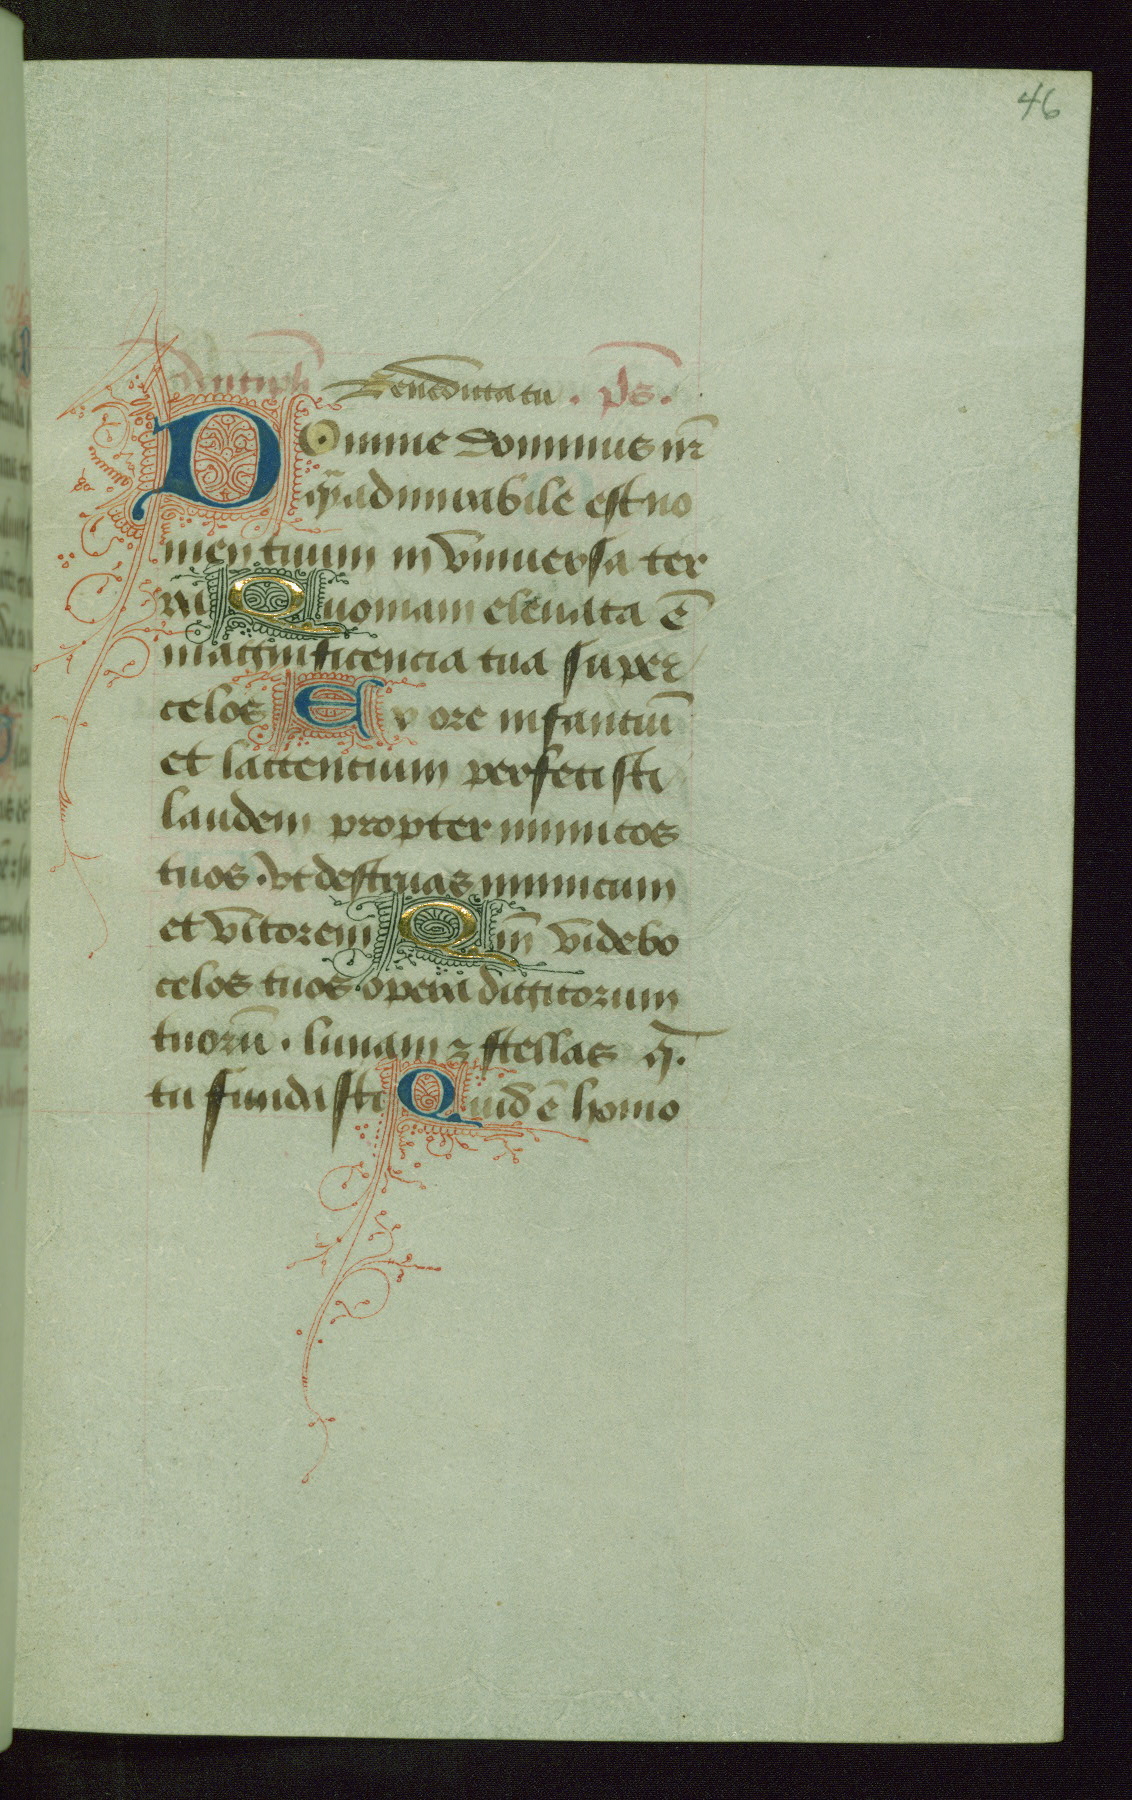 46
Antiph Benedicta tu . ps .
Domine dominus nr̄
q̄ admirabile est no
men tuum in vniuersa ter
ra Quoniam eleuata ē
magnificencia tua super
celos Ex ore infanciū
et lactencium perfecisti
laudem propter inimicos
tuos . vt destruas inimicum
et vltorem Qm̄ videbo
celos tuos opera digitorum
tuorū . lunam ⁊ stellas q̄ .
tu fundasti Quid ē homo